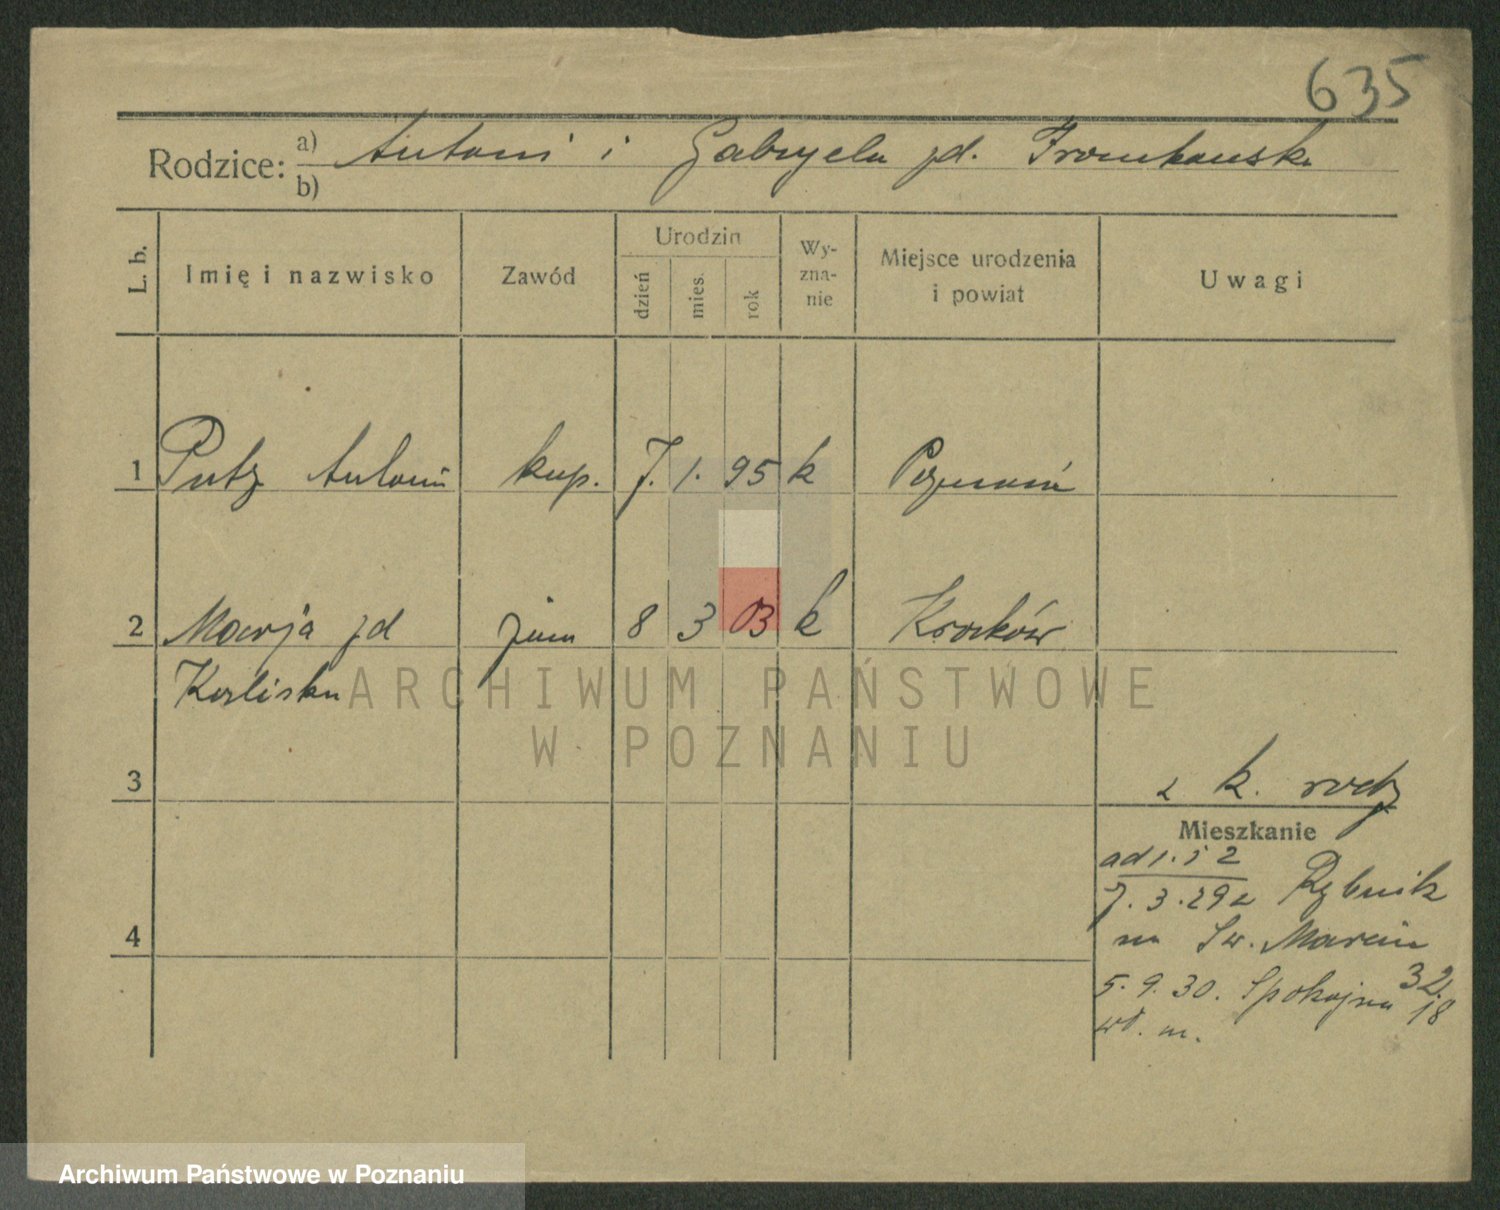 635
Rodzice: a) Antoni i Gabryela zd.
b)
L. b.
Imię i nazwisko
Zawód
Urodzin
dzień
mies.
rok
Wy-
zna-
nie
Miejsce urodzenia
i powiat
Uwagi
1 Putz Antoni kup. 7. 1. 95 k Poznań
2 Marja zd żona 8 3 03 k Kraków
ARCHIWUM PAŃSTWOWE
W POZNANIU
3
z k. rodz
Mieszkanie
ad 1. i 2
7. 3. 29 z Rybnik
na Św. Marcin
32
5. 9. 30. Spokojna 18
wł. m.
4
Archiwum Państwowe w Poznaniu